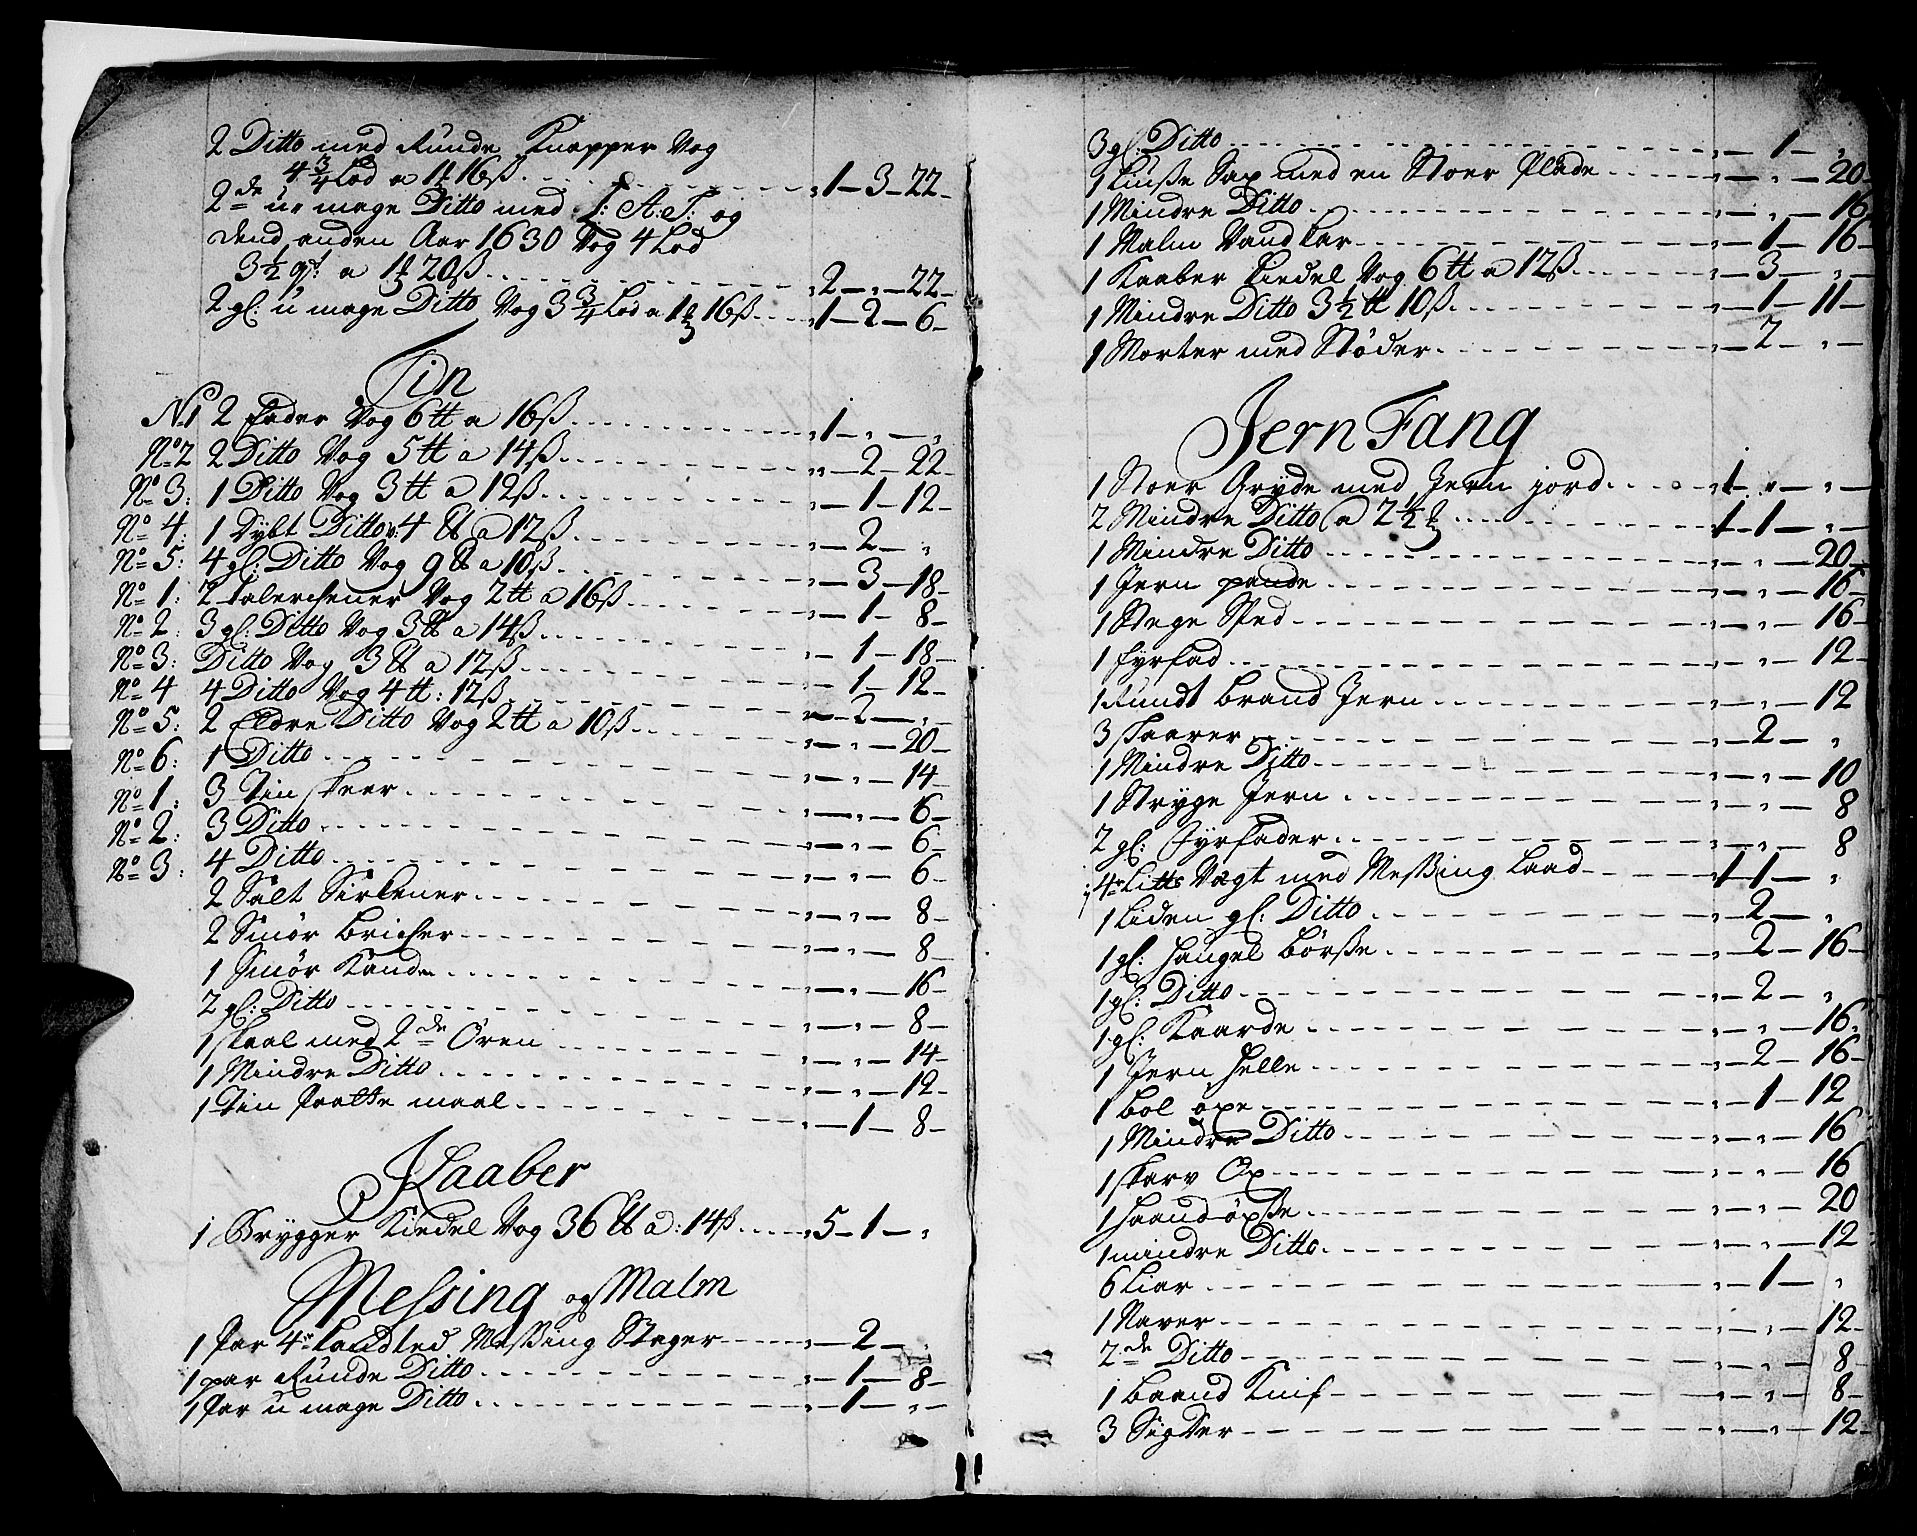 2 Ditto med Runde Knapper Vog
4 3/4 Lod a 1 16ß 1 - 3 - 22
2de u mage Ditto med I: A: S: og
dend anden Aar 1630 Vog 4 Lod
3½ qt: a 1 20ß 2 - „ - 22
2 gl: u mage Ditto Vog 3 3/4 Lod a 1 16ß 1 - 2 - 6
Tin
No 1 2 Fader Vog 6 tt a 16ß 1 - „ - „
No 2 2 Ditto Vog 5 tt a 14ß „ - 2 - 22
No 3: 1 Ditto Vog 3 tt a 12ß „ - 1 - 12
No 4: 1 Dybt Ditto v: 4 tt a 12ß „ - 2 - „
No 5: 4 gl: Ditto Vog 9 tt a 10ß „ - 3 - 18
No 1: 2 talerchener Vog 2 tt a 16ß „ - 1 - 8
No 2: 3 gl: Ditto Vog 3 tt a 14ß „ - 1 - 18
No 3: Ditto Vog 3 tt a 12ß „ - 1 - 12
No 4 4 Ditto Vog 4 tt: 12ß „ - 2 - „
No 5: 2 Eldre Ditto Vog 2 tt a 10ß „ - „ - 20
No 6: 1 Ditto „ - „ - 14
No 1: 3 Tin skeer „ - „ - 6
No 2: 3 Ditto „ - „ - 6
No 3: 4 Ditto „ - „ - 6
2 Salt Sirkener „ - „ - 8
2 Smør Bricher „ - „ - 8
1 Smør Kande „ - „ - 16
2 gl: Ditto „ - „ - 8
1 skaal med 2de Ören „ - „ - 14
1 Mindre Ditto „ - „ - 12
1 Tin Potte maal „ - 1 - 8
Kaaber
1 Brygger Kiedel Vog 36 tt a: 14ß 5 - 1 - „
Messing og Malm
1 Par 4re Messing Stager „ - 2 - „
1 par Runde Ditto „ - 1 - 8
1 Par u mage Ditto „ - 1 - „
3 gl: Ditto „ - 1 - „
1 Liuße Sax med en Stoer Plade „ - „ - 20
1 Mindre Ditto „ - „ - 16
1 Malm Vandkar „ - 1 - 16
1 Kaaber Kiedel Vog 6 tt a 12ß „ - 3 - „
1 Mindre Ditto 3½ tt 10ß „ - 1 - 11
1 Morter med Støder „ - 2 - „
Jern Fang
1 Stoer Gryde med Jern jord 1 - „ - „
2 Mindre Ditto a 2½ 1 - 1 - „
1 Mindre Ditto „ - „ - 20
1 Jern pande „ - „ - 16
1 Stege Sped „ - „ - 16
1 fyrfad „ - „ - 12
1 Rundt Brand Jern „ - „ - 12
3 skaarer „ - 2 - „
1 Mindre Ditto „ - „ - 10
1 Stryge Jern „ - „ - 8
2 gl: Fyrfader „ - „ - 8
Vegt med Meßing Laad 1 - 1 - „
1 Liden gl: Ditto „ - 2 - „
1 gl: Haugel Børße „ - 2 - 16
1 gl: Ditto „ - 2 - „
1 gl: Kaarde „ - „ - 16
1 Jern Helle „ - 2 - 16
1 Bol øxe „ - 1 - 12
1 Mindre Ditto „ - „ - 16
1 skarv Øx „ - „ - 16
1 Haandøxße „ - „ - 20
1 mindre Ditto „ - „ - 12
6 Liar „ - 1 - „
1 Naver „ - „ - 12
2de Ditto „ - „ - 8
1 Baand Knif „ - „ - 8
3 Sigder „ - „ - 12